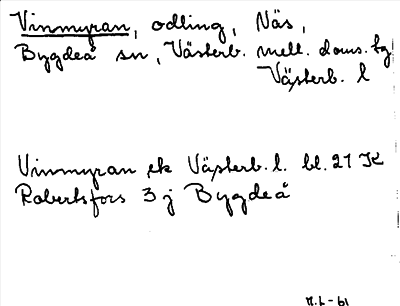 Vinmyran, odling, Näs,
Bygdeå sn, Västerb. mell. doms. hg
Västerb. l
Vinmyran ek Västerb. l. bl. 21 K
Robertsfors 3 j Bygdeå